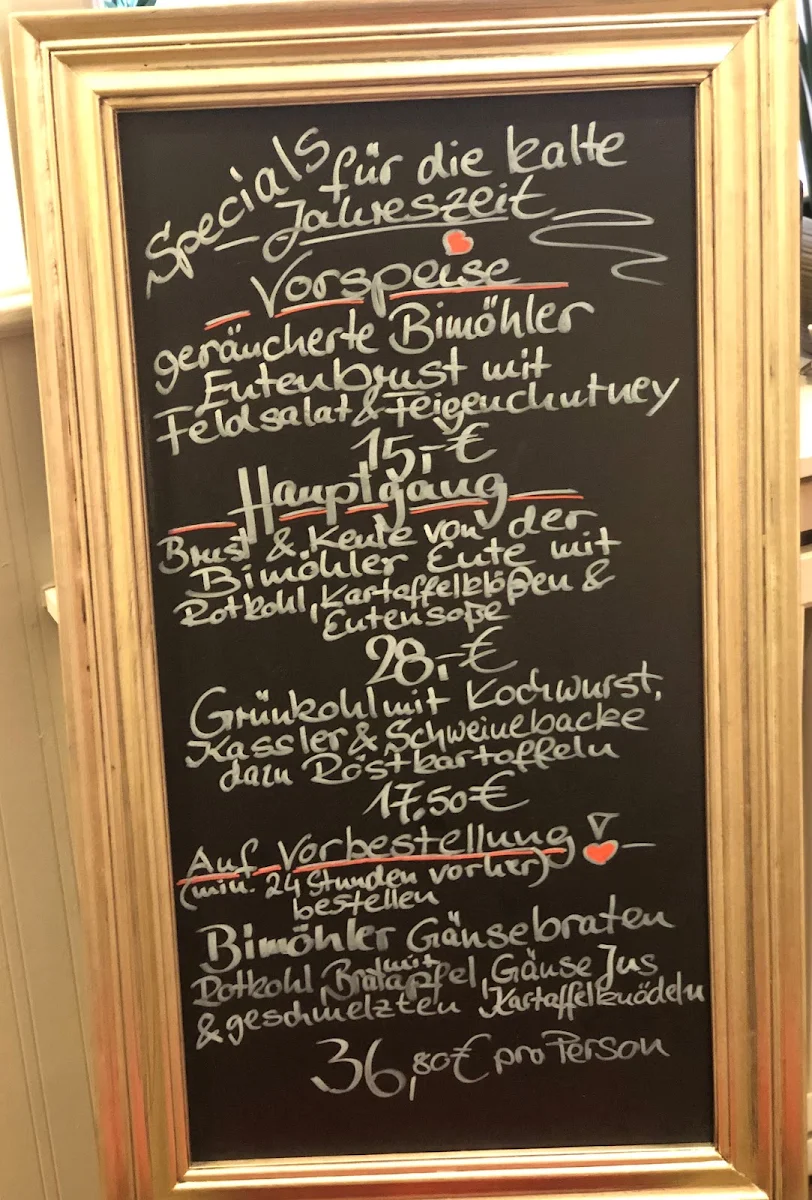 Specials für die kalte
Jahreszeit
Vorspeise
geräucherte Bimöhler
Entenbrust mit
Feldsalat & Feigenchutney
15,-€
Hauptgang
Brust & Keule von der
Bimöhler Ente mit
Rotkohl, Kartoffelklößen &
Entensoße
28,-€
Grünkohl mit Kochwurst,
Kassler & Schweinebacke
dazu Röstkartoffeln
17,50€
Auf Vorbestellung!
(min. 24 Stunden vorher)
bestellen
Bimöhler Gänsebraten
mit
Rotkohl, Bratapfel, Gänse Jus
& geschmelzten Kartoffelknödeln
36,80€ pro Person